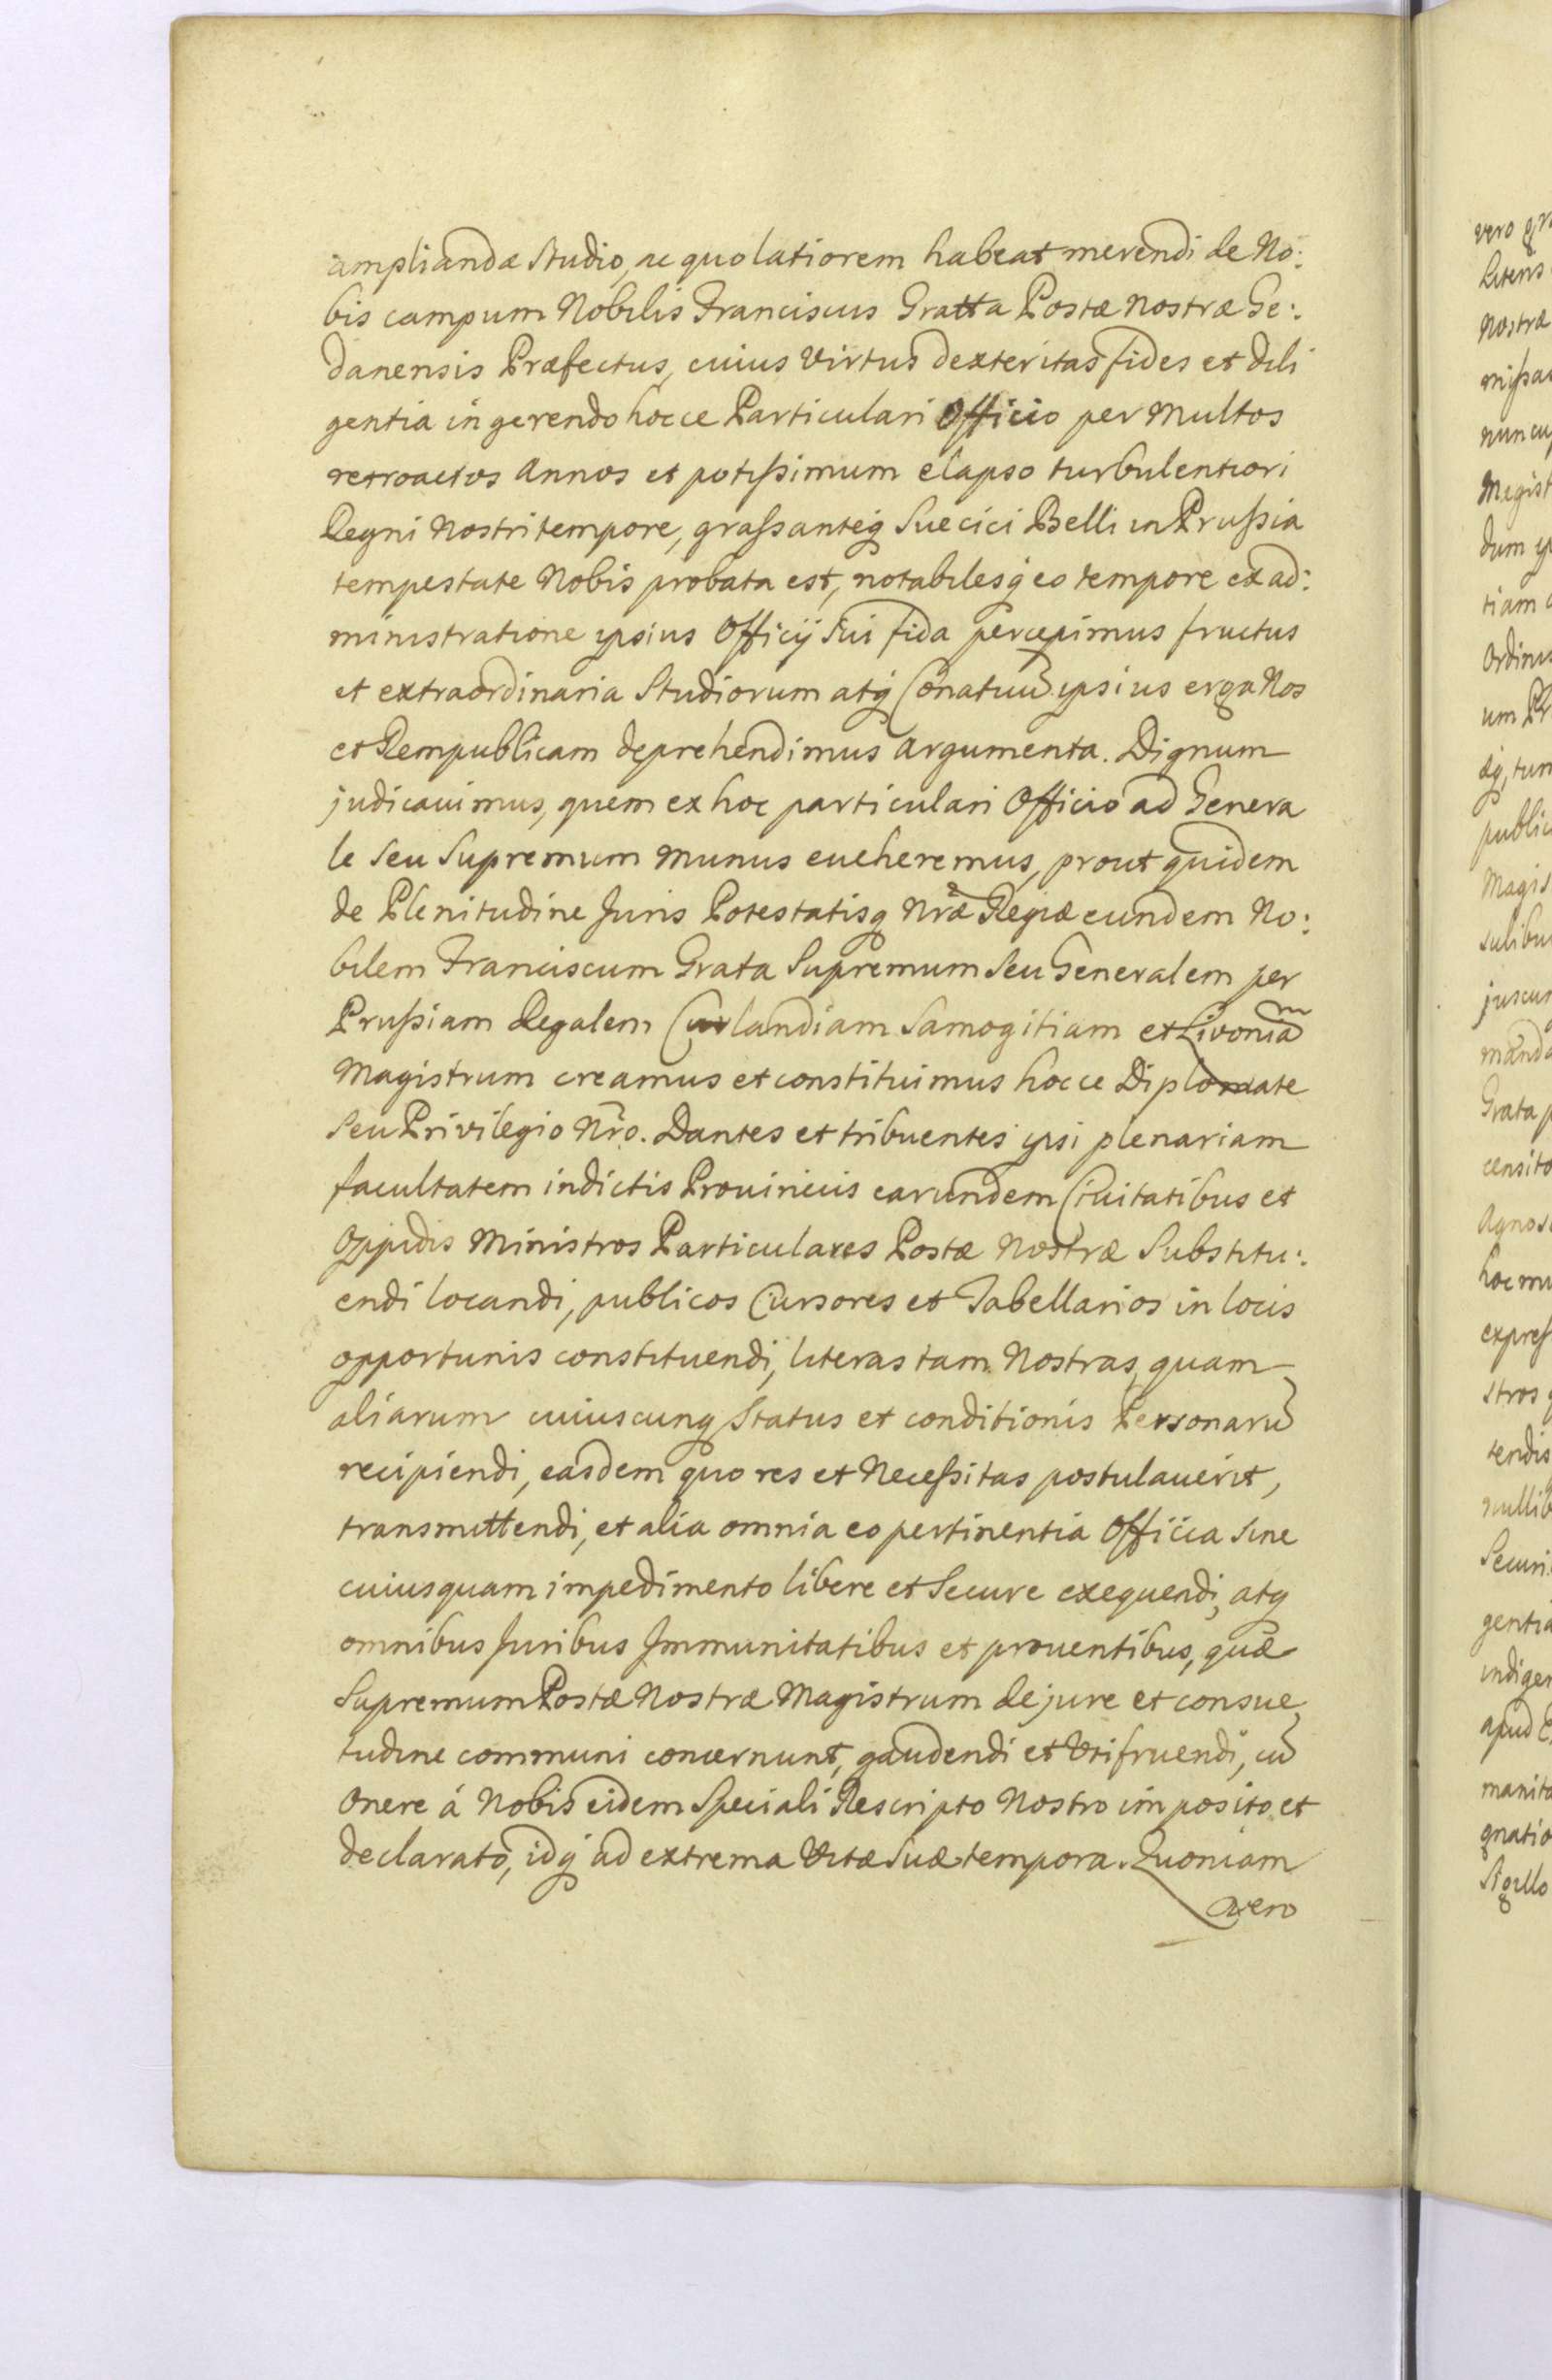 ampliandæ Studio, ac quo latiorem habeat merendi de No:
bis campum Nobilis Franciscus Gratta Postæ nostræ Ge:
danensis Præfectus, cuius Virtus dexteritas fides et dili
gentia in gerendo hocce Particulari Officio per multos
retroactos Annos et potißimum elapso turbulentiori
Regni Nostri tempore, graßanteq Suecici Belli in Prußia
tempestate Nobis probata est, notabilesq eo tempore ex ad:
ministratione ipsius Officij Sui fida percepimus fructus
et extraordinaria Studiorum atq Conatuū ipsius erga Nos
et Rempublicam deprehendimus Argumenta. Dignum
judicauimus, quem ex hoc particulari Officio ad Genera
le Seu Supremum Munus eueheremus, prout quidem
de Plenitudine Juris Potestatisq Nræ Regiæ eundem No:
bilem Franciscum Grata Supremum Seu Generalem per
Prußiam Regalem Curlandiam Samogitiam et Livoniam
Magistrum creamus et constituimus hocce Diplomate
Seu Privilegio Nro. Dantes et tribuentes ipsi plenariam
facultatem in dictis Prouincijs earundem Ciuitatibus et
Oppidis Ministros Particulares Postæ Nostræ Substitu:
endi locandi, publicos Cursores et Tabellarios in locis
opportunis constituendi, literas tam Nostras, quam
aliarum cuiuscunq Status et conditionis Personarū
recipiendi, easdem quo res et Neceßitas postulauerit,
transmittendi, et alia omnia eo pertinentia Officia Sine
cuiusquam impedimento libere et Secure exequendi, atq
omnibus Juribus Immunitatibus et prouentibus, quæ
Supremum Postæ Nostræ Magistrum de jure et consue,
tudine communi concernunt, gaudendi et Utifruendi, cū
Onere á Nobis eidem Speciali Rescripto Nostro imposito et
declarato, idq ad extrema Vitæ Suæ tempora. Quoniam
vero